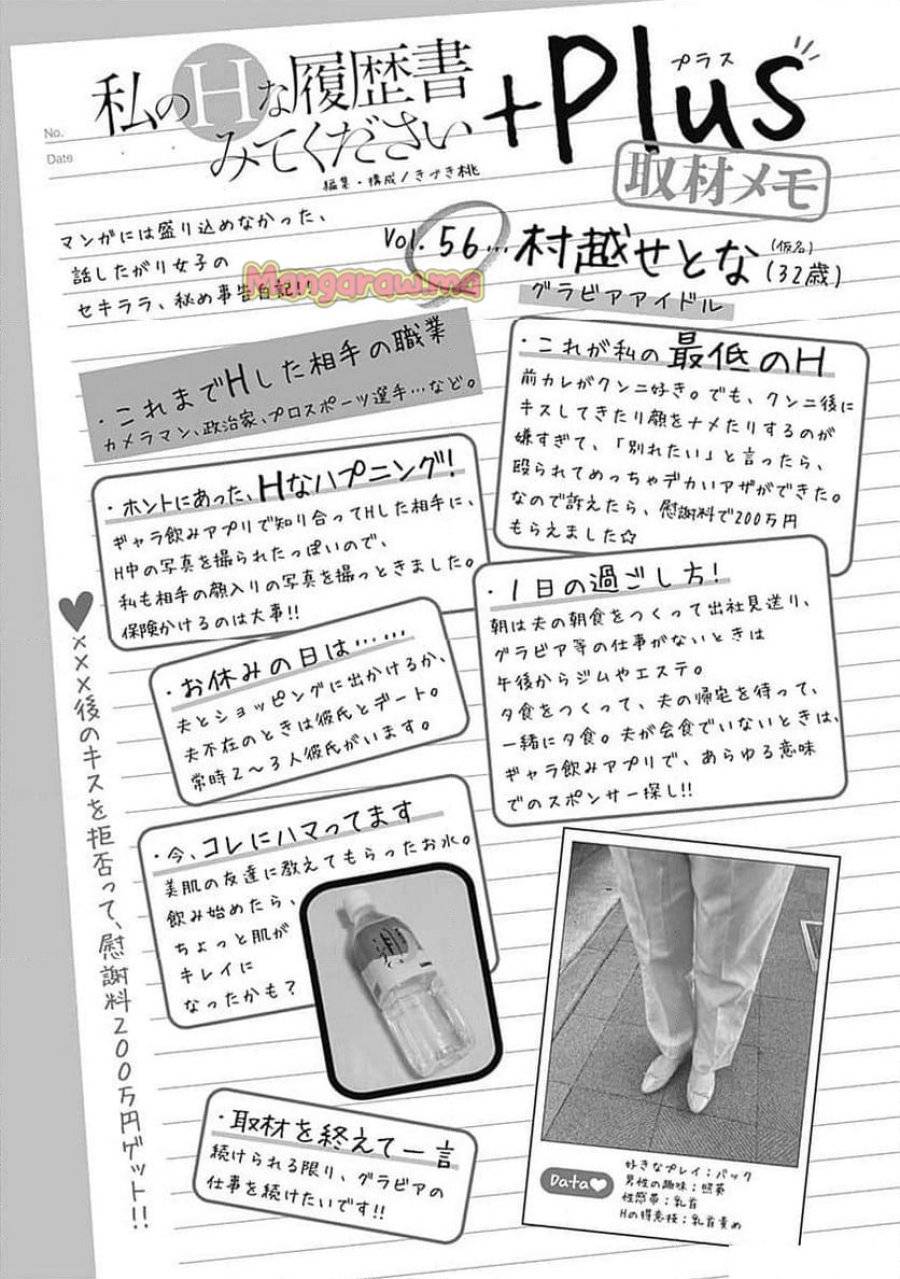 No.
Date
私のHな履歴書
みてください
+Plus
プラス
編集・構成/きづき桃
取材メモ
マンガには盛り込めなかった、
話したがり女子の
セキララ、秘め事告白記!!
Mangaraw.me
Vol.56…村越せとな(仮名)(32歳)
グラビアアイドル
・これまでHした相手の職業
カメラマン、政治家、プロスポーツ選手…など。
・これが私の最低のH
前カレがクンニ好き。でも、クンニ後に
キスしてきたり顔をナメたりするのが
嫌すぎて、「別れたい」と言ったら、
殴られてめっちゃデカいアザができた。
なので訴えたら、慰謝料で200万円
もらえました☆
・ホントにあった、Hなハプニング!
ギャラ飲みアプリで知り合ってHした相手に、
H中の写真を撮られたっぽいので、
私も相手の顔入りの写真を撮っときました。
保険かけるのは大事!!
・1日の過ごし方!
朝は夫の朝食をつくって出社見送り、
グラビア等の仕事がないときは
午後からジムやエステ。
夕食をつくって、夫の帰宅を待って、
一緒に夕食。夫が会食でいないときは、
ギャラ飲みアプリで、あらゆる意味
でのスポンサー探し!!
・お休みの日は……
夫とショッピングに出かけるか、
夫不在のときは彼氏とデート。
常時2〜3人彼氏がいます。
・今、コレにハマってます
美肌の友達に教えてもらったお水。
飲み始めたら、
ちょっと肌が
キレイに
なったかも?
♥×××後のキスを拒否って、慰謝料200万円ゲット!!
・取材を終えて一言
続けられる限り、グラビアの
仕事を続けたいです!!
Data♥
好きなプレイ:バック
男性の趣味:照英
性感帯:乳首
Hの得意技:乳首責め